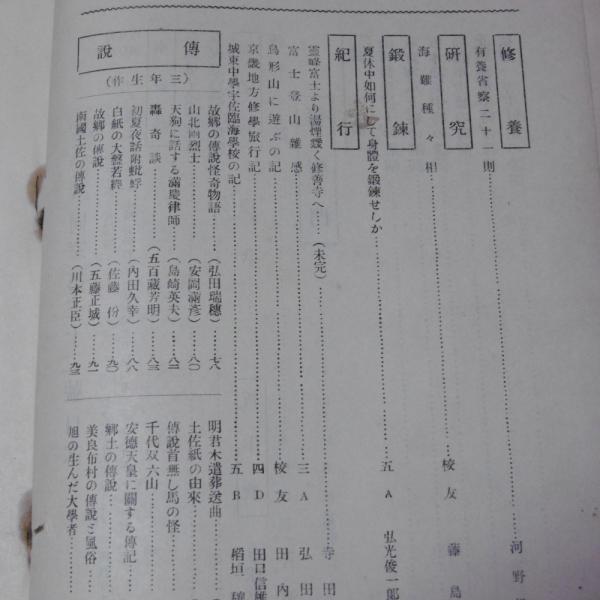 修養
有養省察二十一則………河野
研究
海難種々相………校友 藤島
鍛錬
夏休中如何にして身體を鍛錬せしか………五A 弘光俊一郎
紀行
靈峰富士より湯煙靉く修善寺へ……(未完)………寺田
富士登山雜感………三A 弘田
鳥形山に遊ぶの記………校友 田內
京畿地方修學旅行記………四D 田口信雄
城東中學宇佐臨海學校の記………五B 稻垣
傳說
(三年生作)
故鄕の傳說怪奇物語………(弘田瑞穗)……七八
山北南烈士………(安岡滿彥)……八〇
天狗に話する滿慶律師………(島崎英夫)……八二
轟奇談………(五百藏芳明)……八三
初夏夜話附蚍蜉………(內田久幸)……八八
白紙の大盤若經………(佐藤份)……九〇
故鄕の傳說………(五藤正城)……九一
南國土佐の傳說………(川本正臣)……九三
明君木遺葬送曲
土佐紙の由來………
傳說首無し馬の怪
千代双六山………
安德天皇に關する傳記
鄕土の傳說………
美良布村の傳說と風俗
旭の生んだ大學者………